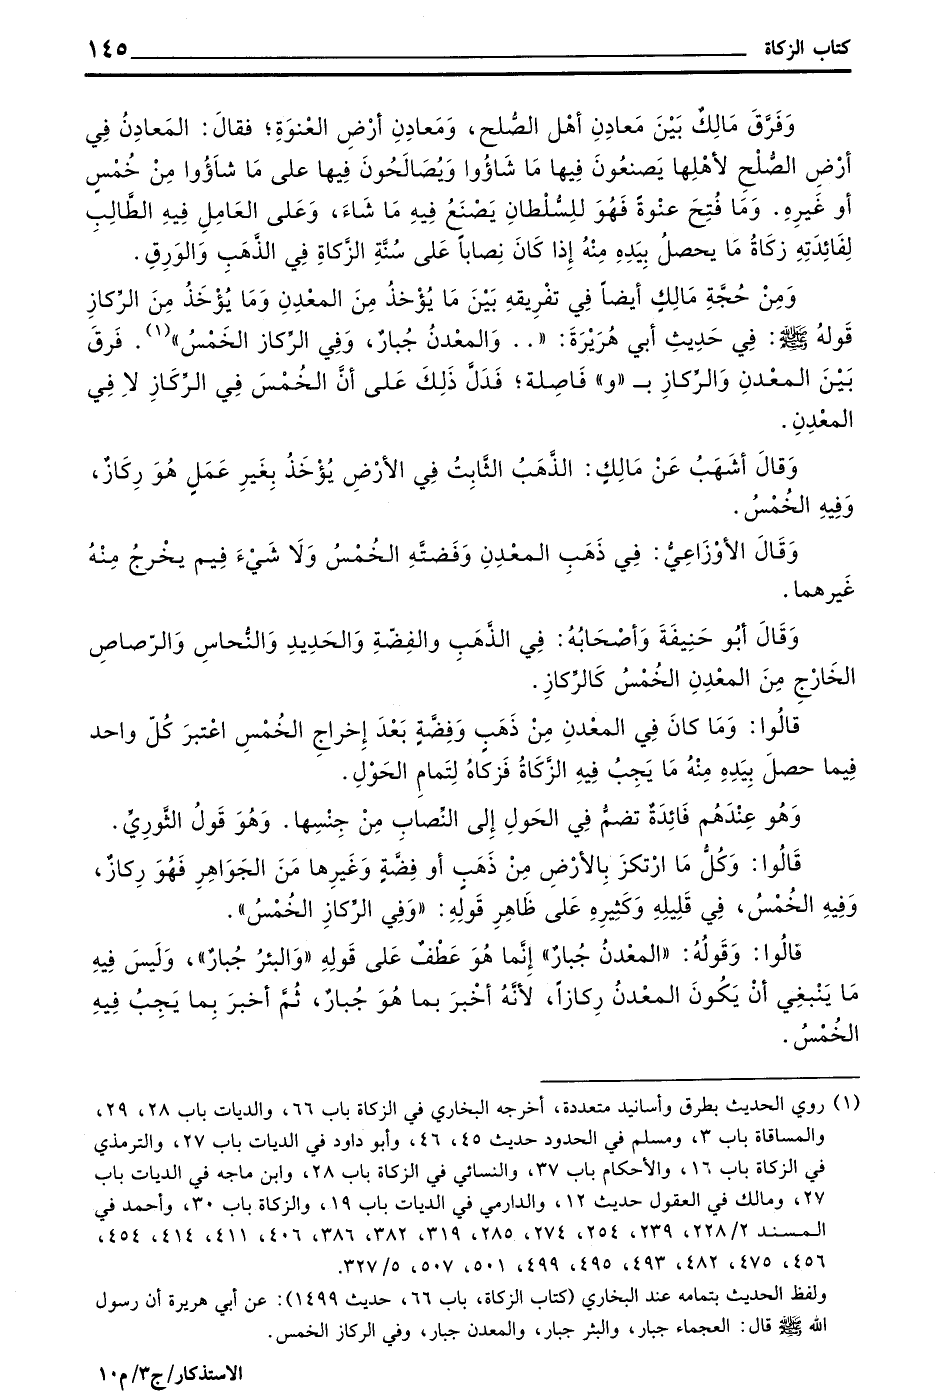 كتاب الزكاة ١٤٥
وَفَرَّقَ مَالِكٌ بَيْنَ مَعادِنِ أهْلِ الصُّلحِ، وَمَعادِنِ أرْضِ العْنوَةِ؛ فقالَ: المَعادِنُ فِي
أرْضِ الصُّلْحِ لأهْلِها يَصنعُونَ فِيها مَا شَاؤُوا وَيُصَالَحُونَ فِيها على مَا شاؤُوا مِنْ خُمْسٍ
أو غَيرِهِ. وَمَا فُتِحَ عنْوةً فَهُوَ للسُّلْطانِ يَصْنَعُ فِيهِ مَا شَاءَ، وَعَلى العَامِلِ فِيهِ الطَّالِبِ
لِفَائِدَتِهِ زكَاةُ مَا يحصلُ بِيَدِهِ مِنْهُ إذا كَانَ نِصاباً عَلى سُنَّةِ الزَّكاةِ فِي الذَّهَبِ وَالوَرِقِ.
وَمِنْ حُجَّةِ مَالِكٍ أيضاً فِي تفْرِيقهِ بَيْنَ مَا يُؤْخذُ مِنَ المعْدنِ وَمَا يُؤْخَذُ مِنَ الرِّكازِ
قَولهُ ﷺ: فِي حَدِيثِ أبي هُرَيْرَةَ: «.. وَالمعْدنُ جُبارٌ، وَفِي الرِّكاز الخَمْسُ»(١). فَرقَ
بَيْنَ المعْدنِ وَالرِّكازِ بـ «و» فَاصِلة؛ فَدَلَّ ذَلِكَ عَلى أنَّ الخُمْسَ فِي الرِّكَازِ لاِ فِي
المعْدِنِ.
وَقالَ أشْهَبُ عَنْ مَالِكٍ: الذَّهَبُ الثَّابِتُ فِي الأرْضِ يُؤْخَذُ بِغَيرِ عَمَلٍ هُوَ رِكَازٌ،
وَفِيهِ الخُمْسُ.
وَقَالَ الأوْزَاعِيُّ: فِي ذَهَبِ المعْدِنِ وَفَضتَّهِ الخُمْسُ وَلَا شَيْءَ فِيم يخْرجُ مِنْهُ
غَيرهما.
وَقَالَ أبُو حَنِيفَةَ وَأصْحَابُهُ: فِي الذَّهَبِ والفِضّةِ وَالحَديدِ وَالنُّحاسِ وَالرّصاصِ
الخَارْجِ مِنَ المعْدِنِ الخُمْسُ كَالرِّكازِ.
قالُوا: وَمَا كانَ فِي المعْدنِ مِنْ ذَهَبٍ وَفِضَّةٍ بَعْدَ إخراجِ الخُمْسِ اعْتبرَ كُلّ واحد
فِيما حصلَ بِيَدِهِ مِنْهُ مَا يَجِبُ فِيهِ الزَّكَاةُ فَزكاهُ لِتَمامِ الحَوْلِ.
وَهُو عِنْدَهُم فَائِدَةٌ تضمُّ فِي الحَولِ إلى النِّصابِ مِنْ جِنْسِها. وَهُوَ قَولُ الثَّوريِّ.
قَالُوا: وَكُلُّ مَا ارْتكزَ بِالأرْضِ مِنْ ذَهَبٍ أو فِضَّةٍ وَغَيرِها مَنَ الجَوَاهرِ فَهُوَ رِكازٌ،
وَفِيهِ الخُمْسُ، فِي قَلِيلِهِ وَكَثِيرِهِ عَلى ظَاهِرِ قَولِهِ: «وَفِي الرِّكازِ الخُمْسُ».
قالُوا: وَقَولُهُ: «المعْدنُ جُبارٌ» إنَّما هُوَ عَطْفٌ عَلى قَولِهِ «وَالبئرُ جُبارٌ»، وَلَيسَ فِيهِ
مَا يَنْبغِي أنْ يَكُونَ المعْدنُ رِكازاً، لأنَّهُ أخْبرَ بما هُوَ جُبارٌ، ثُمَّ أخبرَ بِما يَجِبُ فِيهِ
الخُمْسُ.
(١) روي الحديث بطرق وأسانيد متعددة، أخرجه البخاري في الزكاة باب ٦٦، والديات باب ٢٨، ٢٩،
والمساقاة باب ٣، ومسلم في الحدود حديث ٤٥، ٤٦، وأبو داود في الديات باب ٢٧، والترمذي
في الزكاة باب ١٦، والأحكام باب ٣٧، والنسائي في الزكاة باب ٢٨، وابن ماجه في الديات باب
٢٧، ومالك في العقول حديث ١٢، والدارمي في الديات باب ١٩، والزكاة باب ٣٠، وأحمد في
المسند ٢/ ٢٢٨، ٢٣٩، ٢٥٤، ٢٧٤، ٢٨٥، ٣١٩، ٣٨٢، ٣٨٦، ٤٠٦، ٤١١، ٤١٤، ٤٥٤،
٤٥٦، ٤٧٥، ٤٨٢، ٤٩٣، ٤٩٥، ٤٩٩، ٥٠١، ٥٠٧، ٥/ ٣٢٧.
ولفظ الحديث بتمامه عند البخاري (كتاب الزكاة، باب ٦٦، حديث ١٤٩٩): عن أبي هريرة أن رسول
الله ﷺ قال: العجماء جبار، والبئر جبار، والمعدن جبار، وفي الركاز الخمس.
الاستذكار/ ج٣/ م١٠